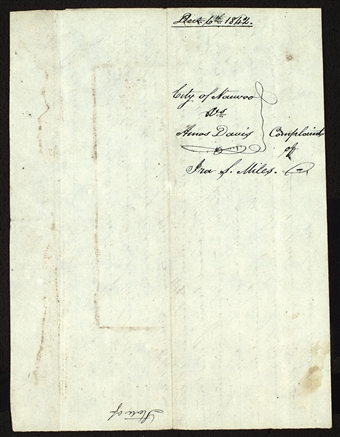 Dec 6th 1842.
City of Nauvoo
vs
Amos Davis
Complaint
of
Ira S. Miles.
State of